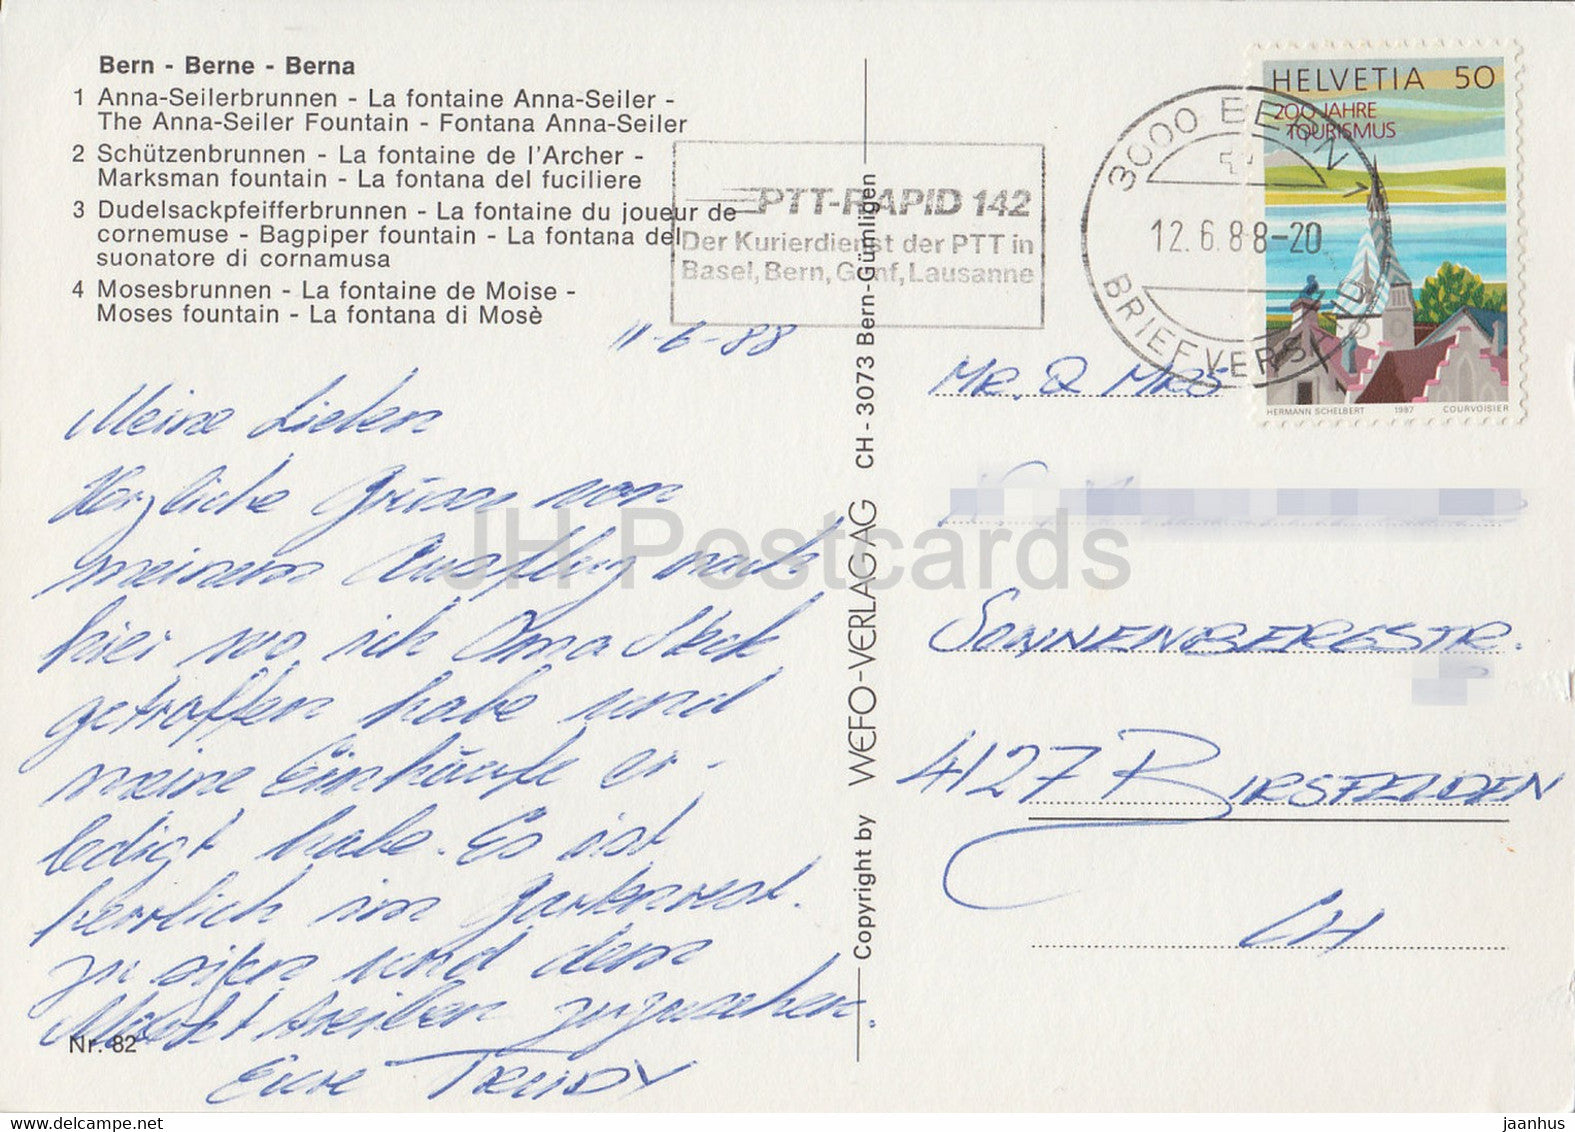 Bern - Berne - Berna
1 Anna-Seilerbrunnen - La fontaine Anna-Seiler -
The Anna-Seiler Fountain - Fontana Anna-Seiler
2 Schützenbrunnen - La fontaine de l'Archer -
Marksman fountain - La fontana del fuciliere
3 Dudelsackpfeifferbrunnen - La fontaine du joueur de
cornemuse - Bagpiper fountain - La fontana del
suonatore di cornamusa
4 Mosesbrunnen - La fontaine de Moise -
Moses fountain - La fontana di Mosè
11-6-88
Meine Lieben
Herzliche Grüsse von
meinem Ausflug nach
hier wo ich Oma
getroffen habe und
meine Einkäufe er-
ledigt habe. Es ist
herrlich im Gartenrest.
zu sitzen und dem
Markt treiben zuzusehen.
Eure TRUDY
Nr. 82
Copyright by WEFO-VERLAG AG CH - 3073 Bern-Gümligen
PTT-RAPID 142
Der Kurierdienst der PTT in
Basel, Bern, Genf, Lausanne
3000 BERN 1
12.6.88-20
BRIEFVERSAND
HELVETIA 50
200 JAHRE
TOURISMUS
HERMANN SCHELBERT 1987 COURVOISIER
MR. & MRS
SONNENBERGSTR.
4127 BIRSFELDEN
CH
JH Postcards
www.delcampe.net
jaanhus